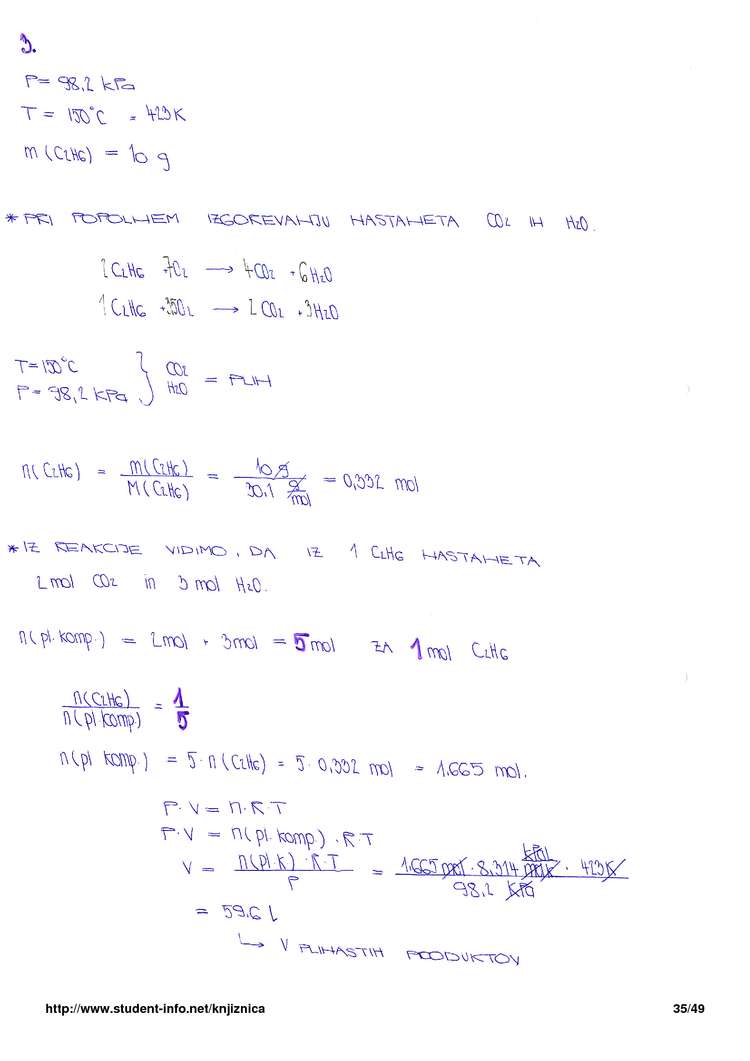 3.
P = 98,2 kPa
T = 150°C = 423K
m (C2H6) = 10 g
* PRI POPOLNEM IZGOREVANJU NASTANETA CO2 IN H2O.
2C2H6 + 7O2 → 4CO2 + 6H2O
1C2H6 + 3,5O2 → 2CO2 + 3H2O
T = 150°C } CO2
P = 98,2 kPa } H2O = PLIN
n(C2H6) = m(C2H6) / M(C2H6) = 10 g / 30,1 g/mol = 0,332 mol
* IZ REAKCIJE VIDIMO, DA IZ 1 C2H6 NASTANETA
2mol CO2 in 3 mol H2O.
n(pl. komp.) = 2mol + 3mol = 5mol ZA 1mol C2H6
n(C2H6) / n(pl. komp.) = 1 / 5
n(pl komp.) = 5 · n(C2H6) = 5 · 0,332 mol = 1,665 mol.
P · V = n · R · T
P · V = n(pl. komp.) · R · T
V = n(pl. k) · R · T / P = 1,665 mol · 8,314 kPa l / mol K · 423K / 98,2 kPa
= 59,6 l
↳ V PLINASTIH PRODUKTOV
http://www.student-info.net/knjiznica
35/49